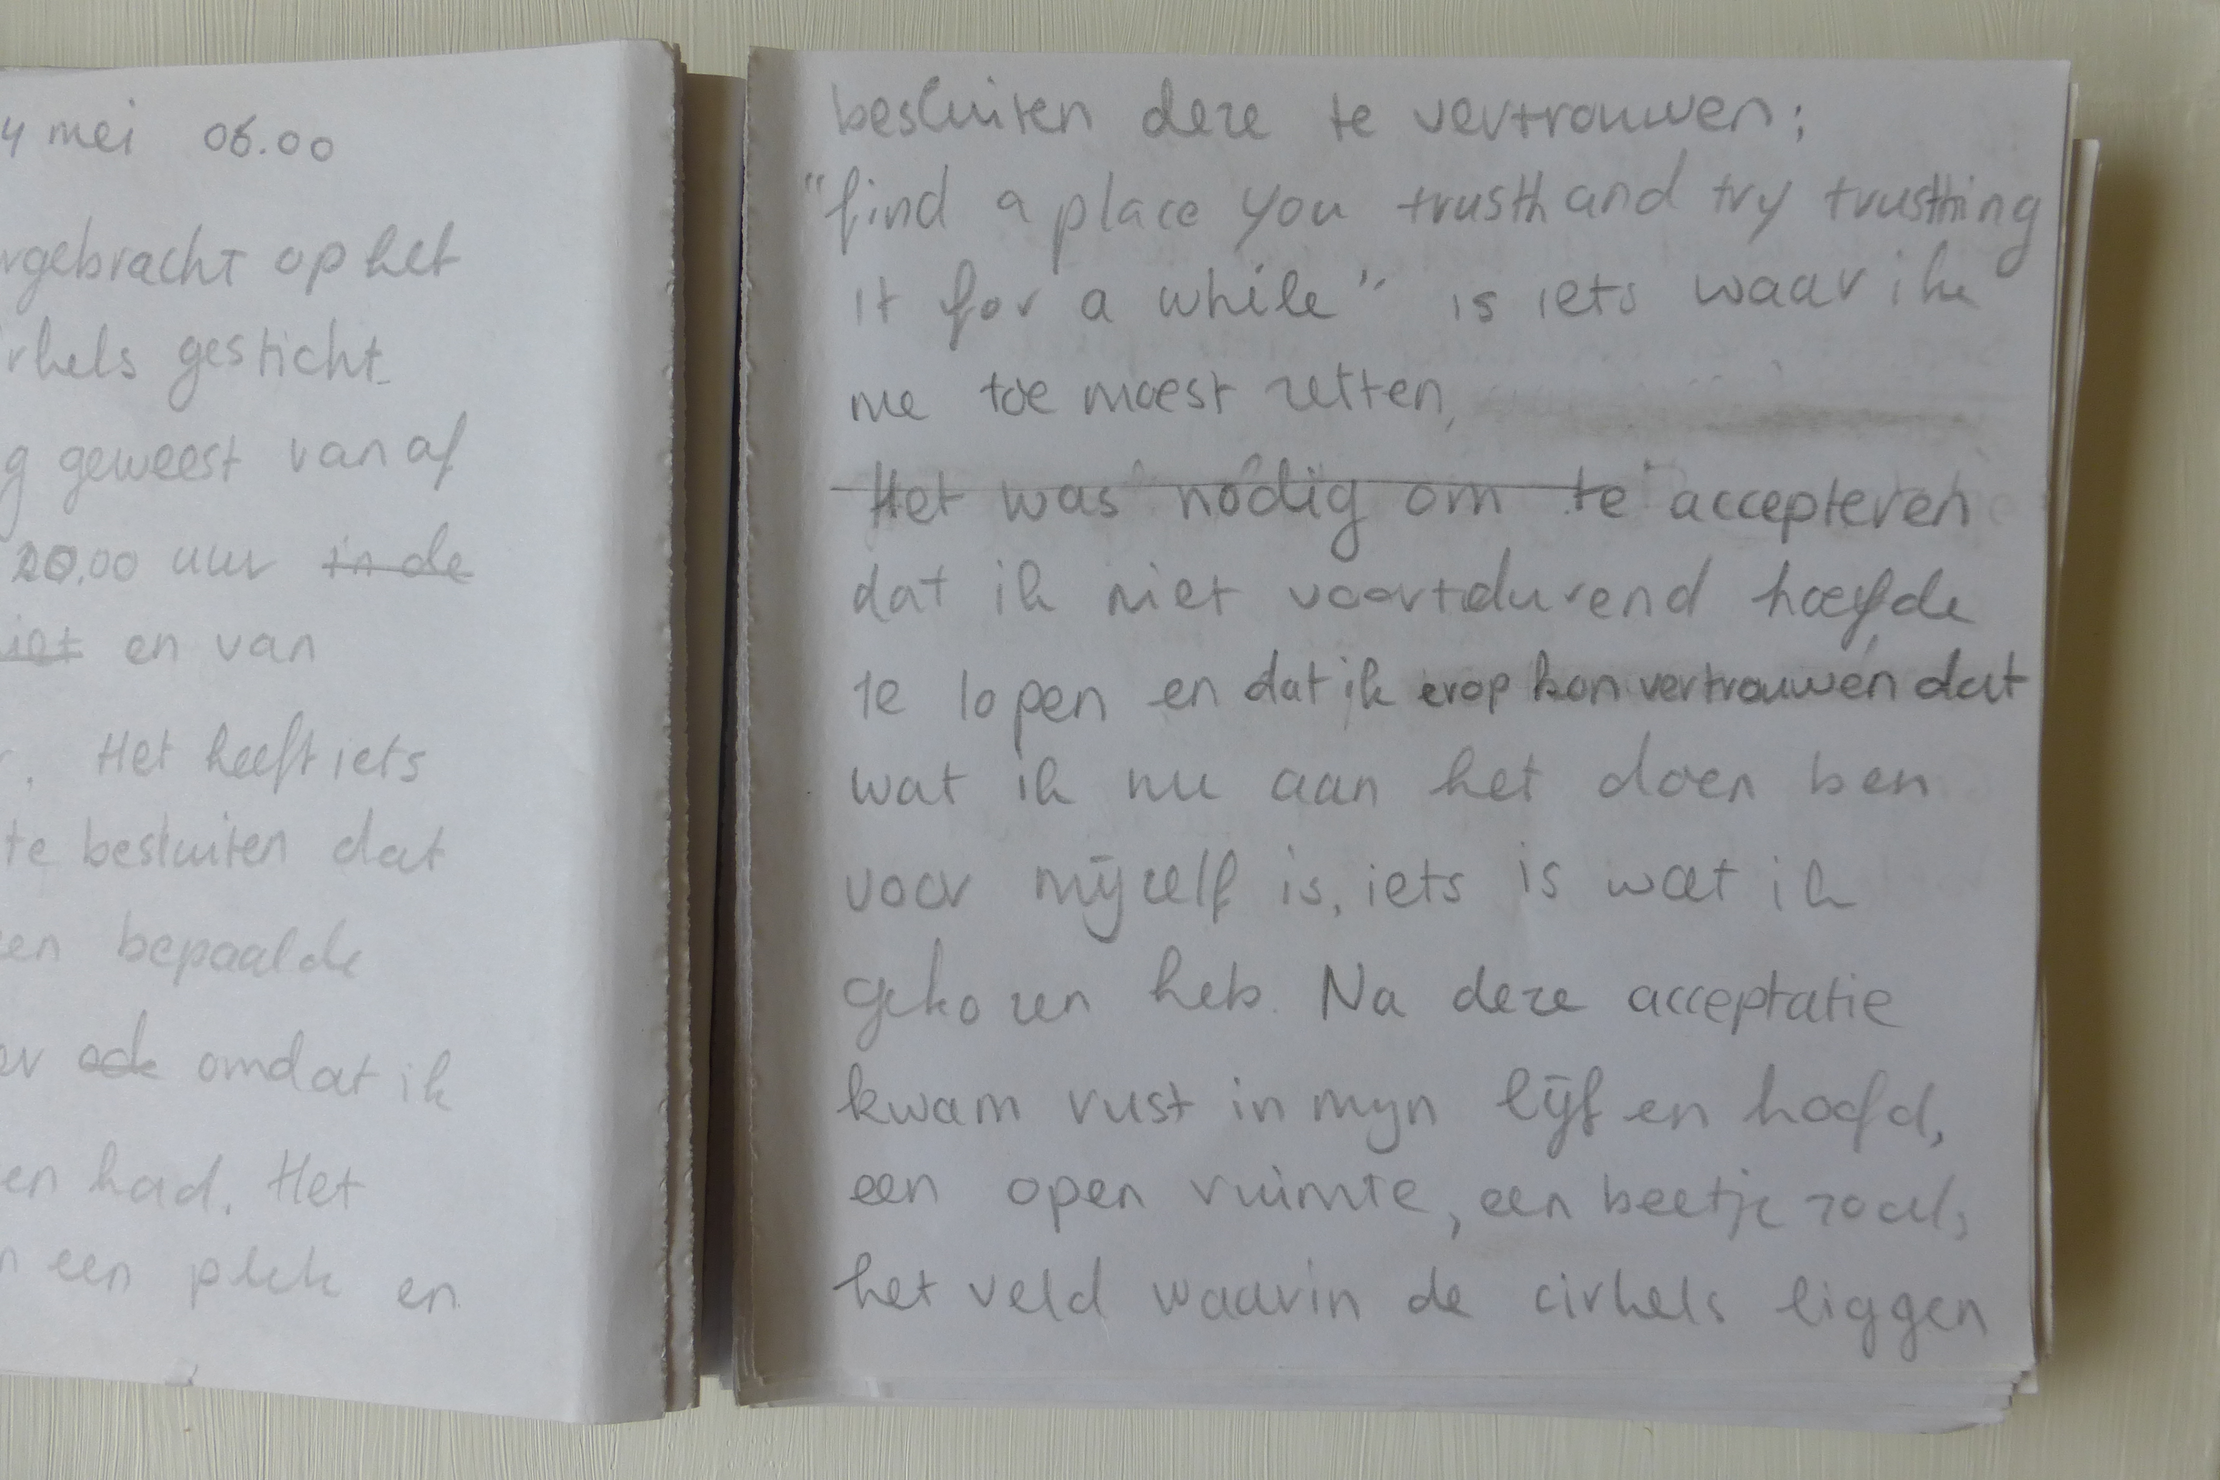 4 mei 06.00
rgebracht op het
rkels gesticht.
g geweest vanaf
20.00 uur in de
iet en van
r. Het heeft iets
te besluiten dat
en bepaalde
er ook omdat ik
en had. Het
n een plek en
besluiten deze te vertrouwen;
"find a place you trusth and try trusthing
it for a while" is iets waar ik
me toe moest zetten,
Het was nodig om te accepteren
dat ik niet voortdurend hoefde
te lopen en dat ik erop kon vertrouwen dat
wat ik nu aan het doen ben
voor mijzelf is, iets is wat ik
gekozen heb. Na deze acceptatie
kwam rust in mijn lijf en hoofd,
een open ruimte, een beetje zoals
het veld waarin de cirkels liggen